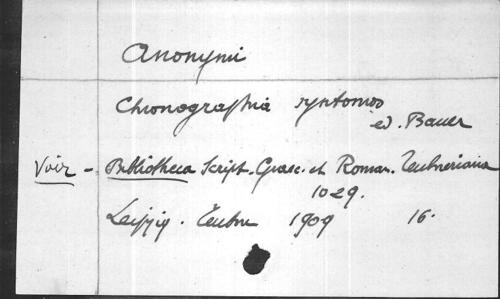 Anonymi
Chronographia syntomos
ed. Bauer
Voir - Bibliotheca Script. Graec. et Roman. Teubneriana
1029.
Leipzig. Teubne 1909 16.